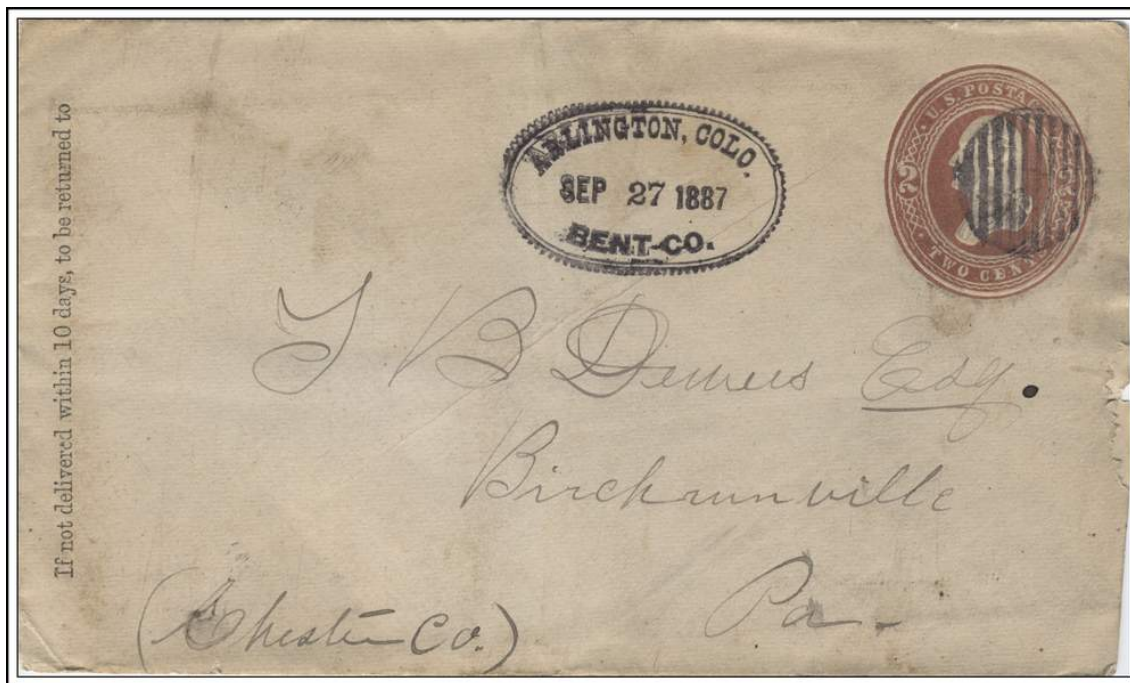 If not delivered within 10 days, to be returned to
ARLINGTON, COLO.
SEP 27 1887
BENT-CO.
U.S. POSTAGE
2
TWO CENTS
B Esq.
Birchrunville
Pa.
(Chester Co.)